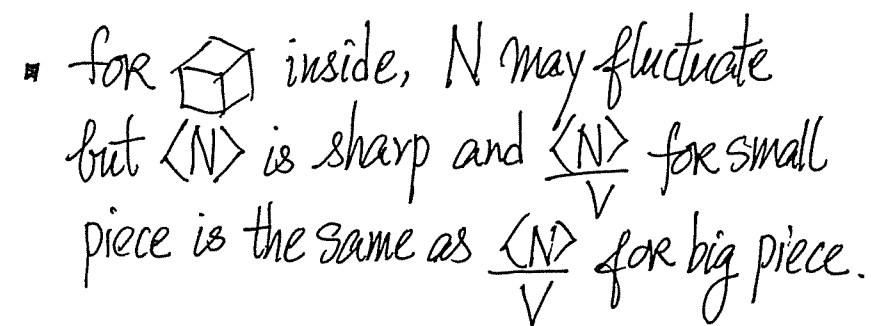 ▪ for inside, N may fluctuate
but ⟨N⟩ is sharp and ⟨N⟩/V for small
piece is the same as ⟨N⟩/V for big piece.